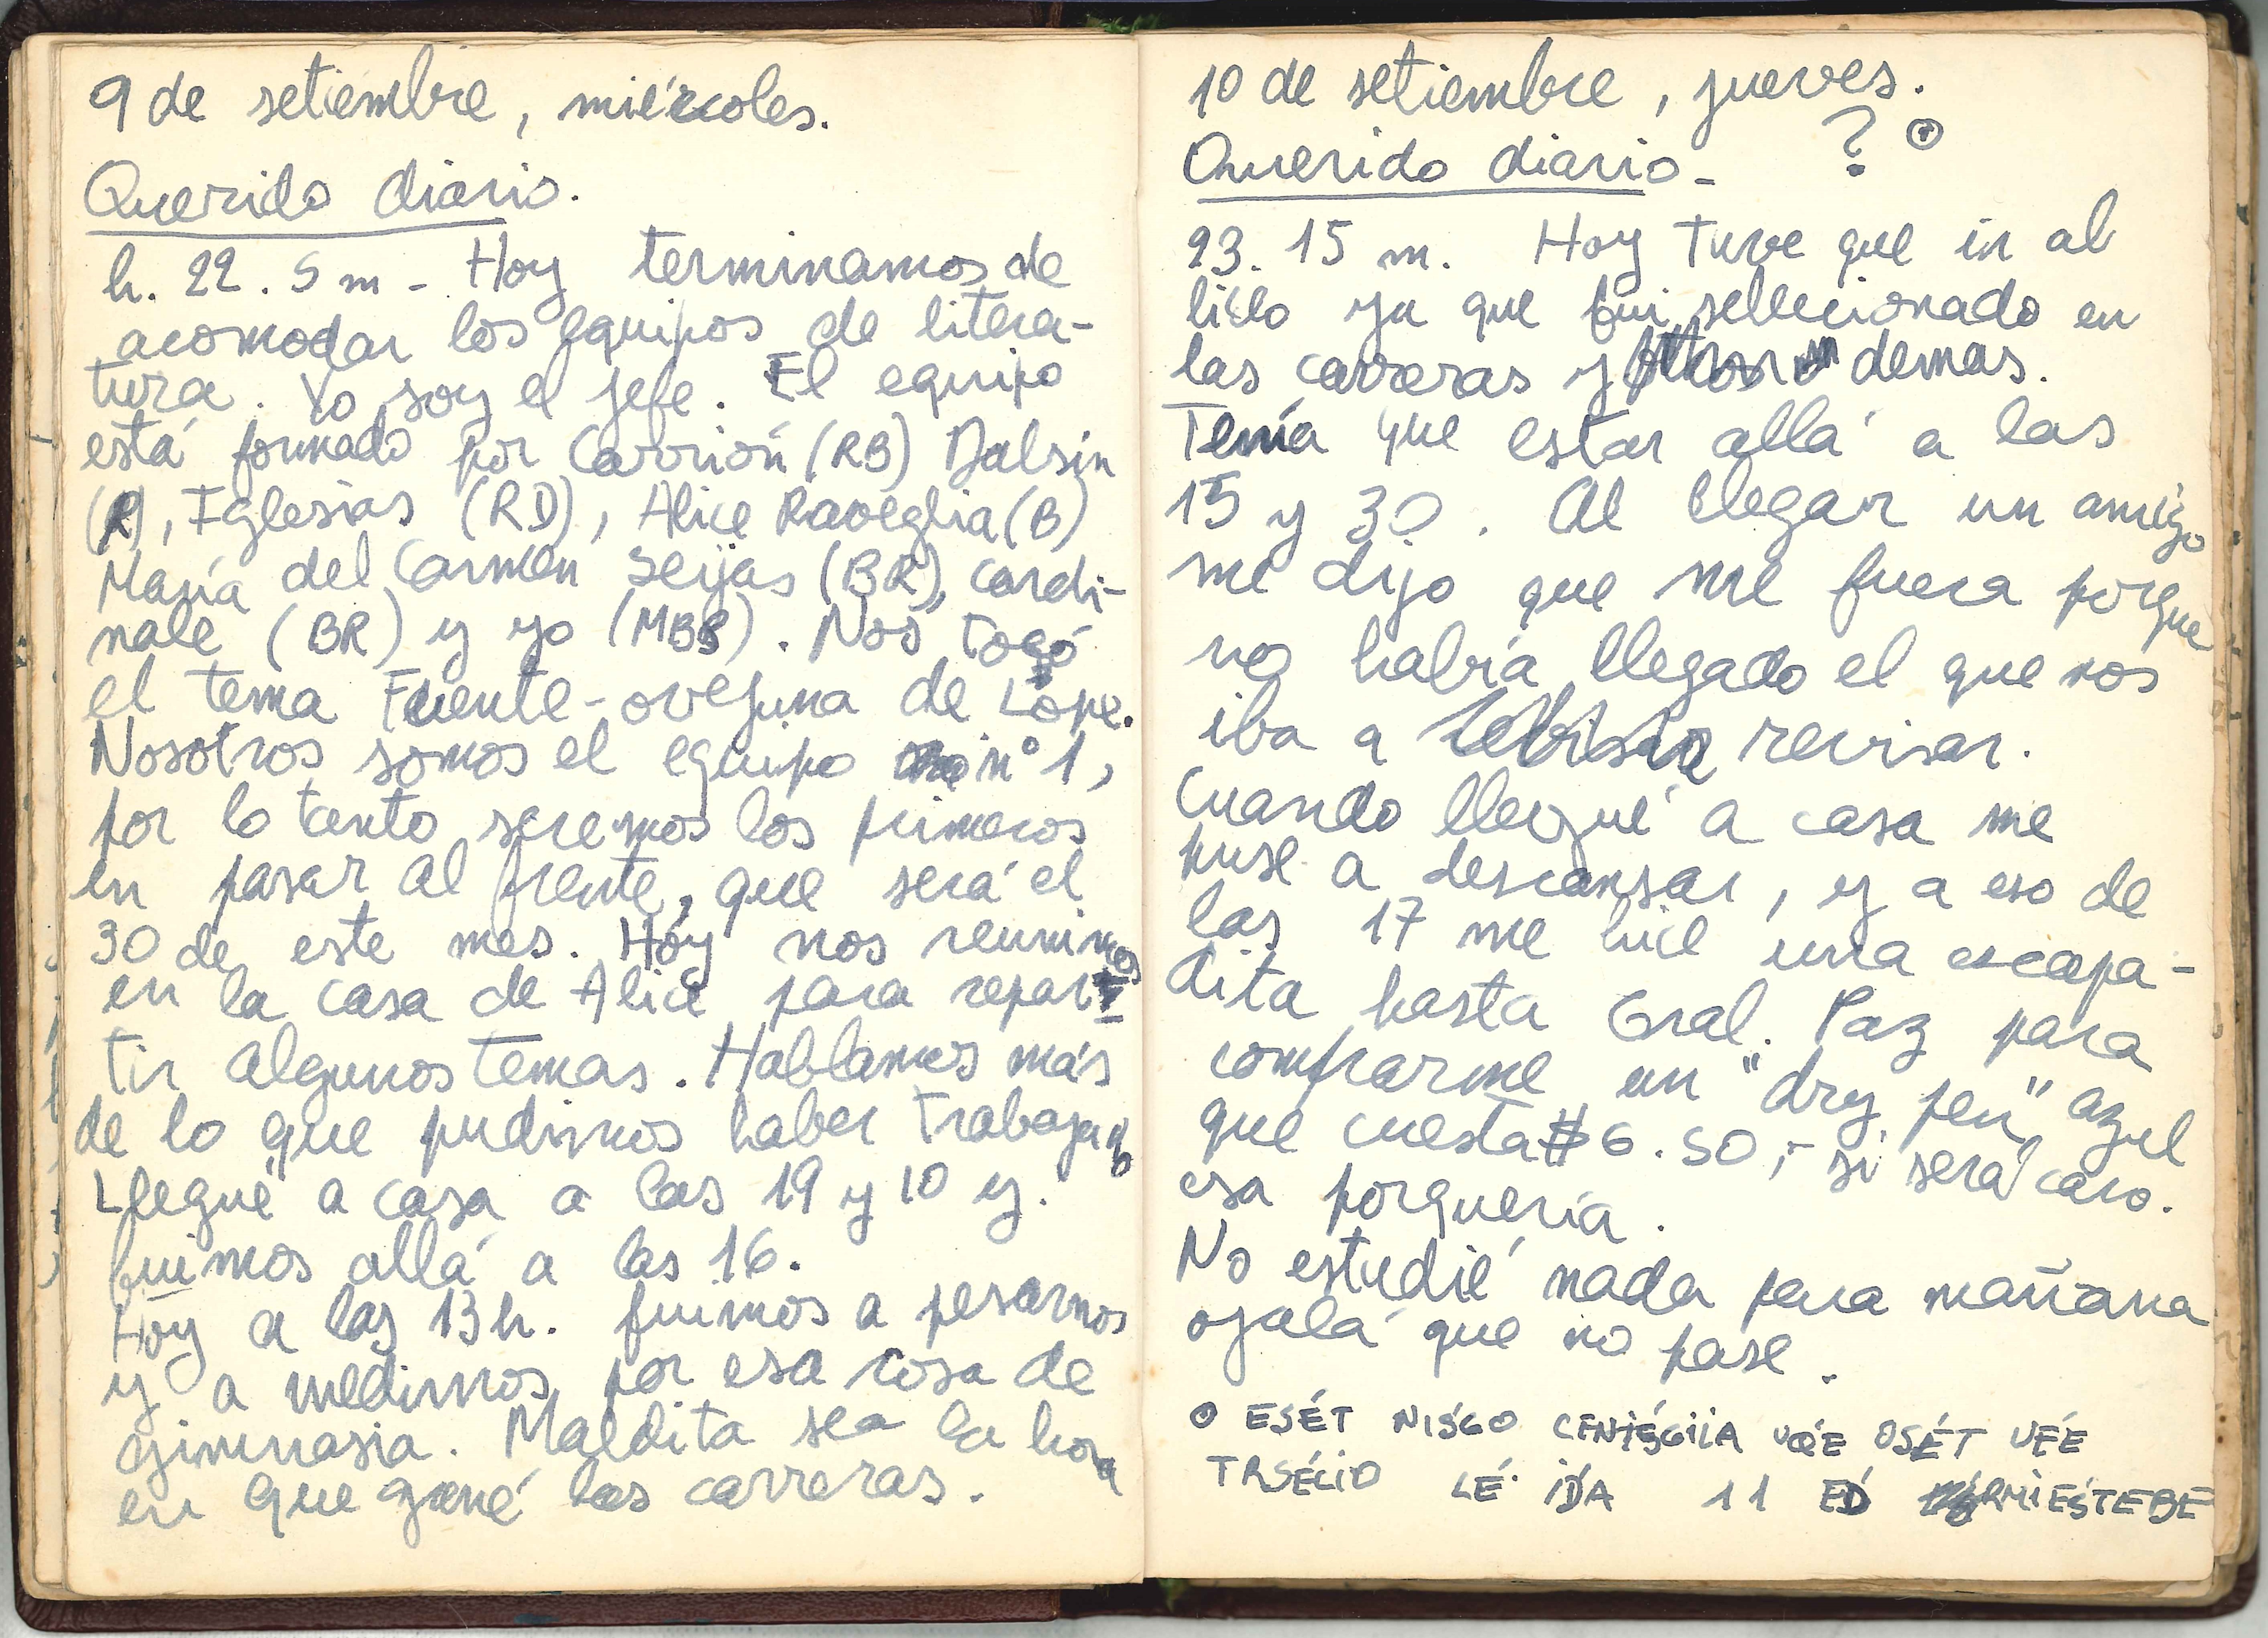 9 de setiembre, miércoles.
Querido diario.
h. 22. 5 m - Hoy terminamos de
acomodar los equipos de litera-
tura. Yo soy el jefe. El equipo
está formado por Carrión (RB) Dalsin
(R), Iglesias (RD), Alice Raveglia (B)
María del Carmen Seijas (BR), Cardi-
nale (BR) y yo (MBS). Nos tocó
el tema Fuente-ovejuna de Lope.
Nosotros somos el equipo n° 1,
por lo tanto seremos los primeros
en pasar al frente, que será el
30 de este mes. Hoy nos reunimos
en la casa de Alice para repar-
tir algunos temas. Hablamos más
de lo que pudimos haber trabajado
Llegué a casa a las 19 y 10 y.
fuimos allá a las 16.
Hoy a las 13 h. fuimos a pesarnos
y a medirnos por esa cosa de
gimnasia. Maldita sea la hora
en que gané las carreras.
10 de setiembre, jueves.
Querido diario - ?
23. 15 m. Hoy tuve que ir al
liceo ya que fui sellecionado en
las carreras y demas.
Tenía que estar allá a las
15 y 30. Al llegar un amigo
me dijo que me fuera porque
no había llegado el que nos
iba a revisar.
Cuando llegué a casa me
puse a descansar, y a eso de
las 17 me hice una escapa-
dita hasta Gral. Paz para
comprarme un "dry pen" azul
que cuesta $ 6.50,- si será caro.
esa porquería.
No estudié nada para mañana
ojalá que no pase.
O ESÉT NISGO UQE OSÉT UFÉ
TRSÉCIO LÉ IDA 11 ED RMIESTEBE